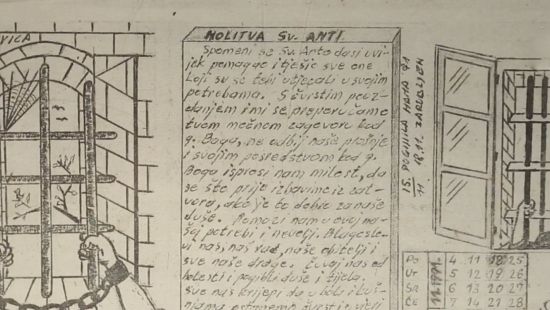 VICA
MOLITVA Sv. ANTI
Spomeni se Sv. Anto da si uvi-
jek pomagao i tješio sve one
koji su se tebi utjecali u svojim
potrebama. S čvrstim pouz-
danjem i mi se preporučamo
tvom moćnom zagovoru kod
g. Boga, ne odbij naše prošnje
i svojim posredstvom kod g.
Boga isprosi nam milost, da
se što prije izbavimo iz zat-
vora, ako je to dobro za naše
duše. Pomozi nam u ovoj na-
šoj potrebi i nevolji. Blagoslo-
vi nas, naš rad, naše obitelji i
sve naše drage. Čuvaj nas od
bolesti i pogibli duše i tijela.
sve nas krijepi da u boli i kuš-
njama ostanemo čvrsti u vjeri
15. POGINULA 91
11 18.11. ZAROBLJEN
11.1991.
PO 4 11 18 25
UT 5 12 19 26
SR 6 13 20 27
ČE 7 14 21 28